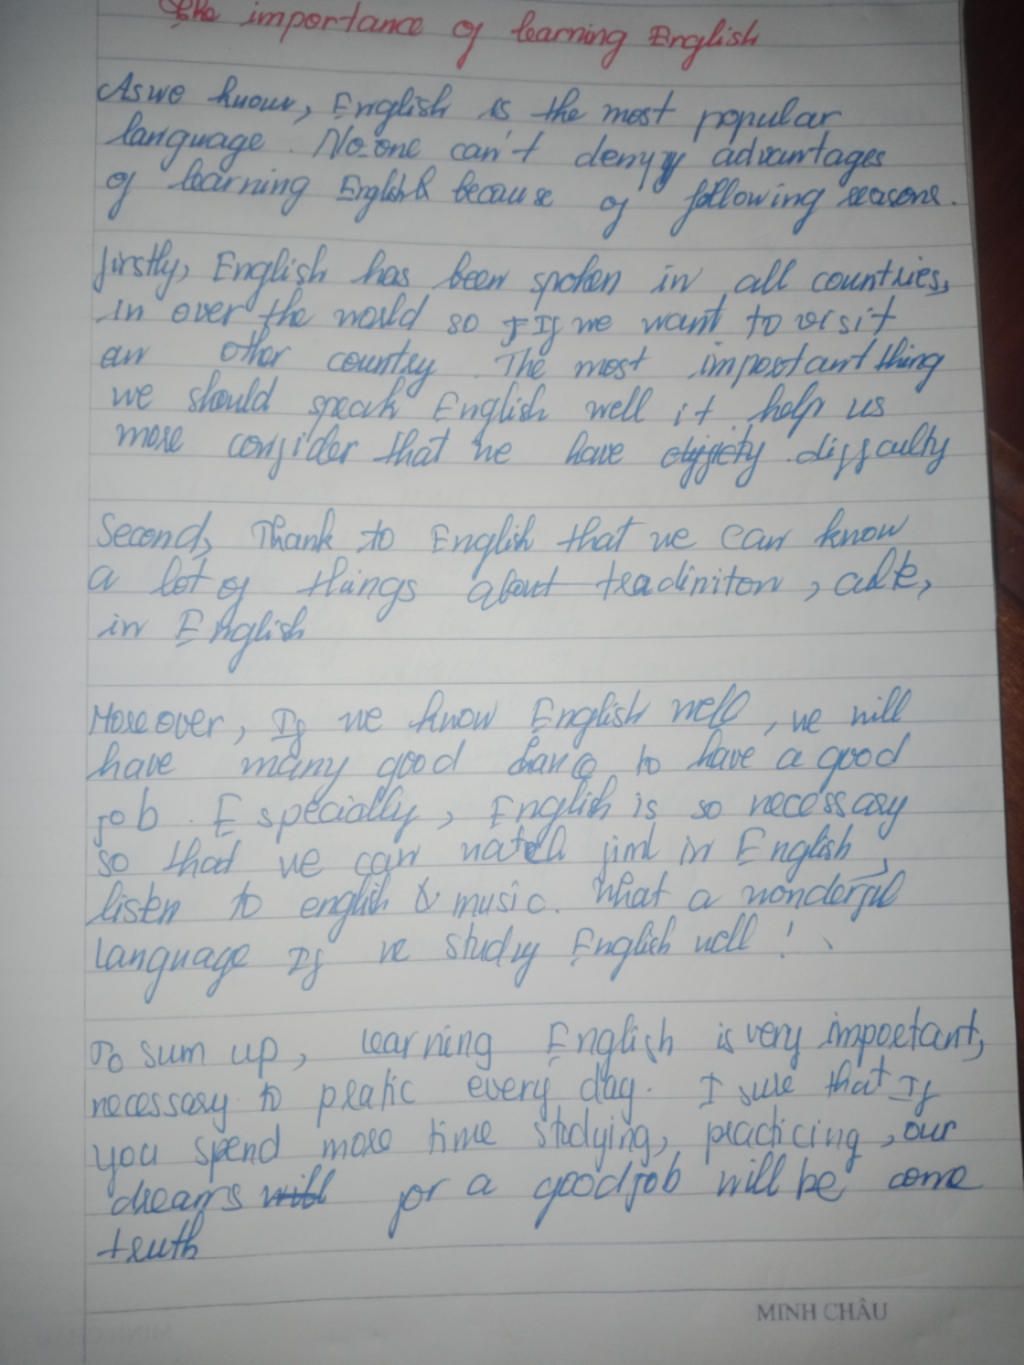 The importance of learning English
As we know, English is the most popular
language. No one can't deny advantages
of learning English because of following reasons.
firstly, English has been spoken in all countries,
in over the world so If we want to visit
an other country. The most important thing
we should speak English well it help us
more confider that we have difficulty
Second, Thank to English that we can know
a lot of things about tradiniton,
in English
Moreover, If we know English well, we will
have many good to have a good
job. Especially, English is so necessary
so that we can watch film in English,
listen to english music. What a wonderful
language If we study English well!
To sum up, learning English is very important,
necessary to pratic every day. I sure that If
you spend more time studying, practicing, our
dreams for a good job will be come
truth
MINH CHÂU